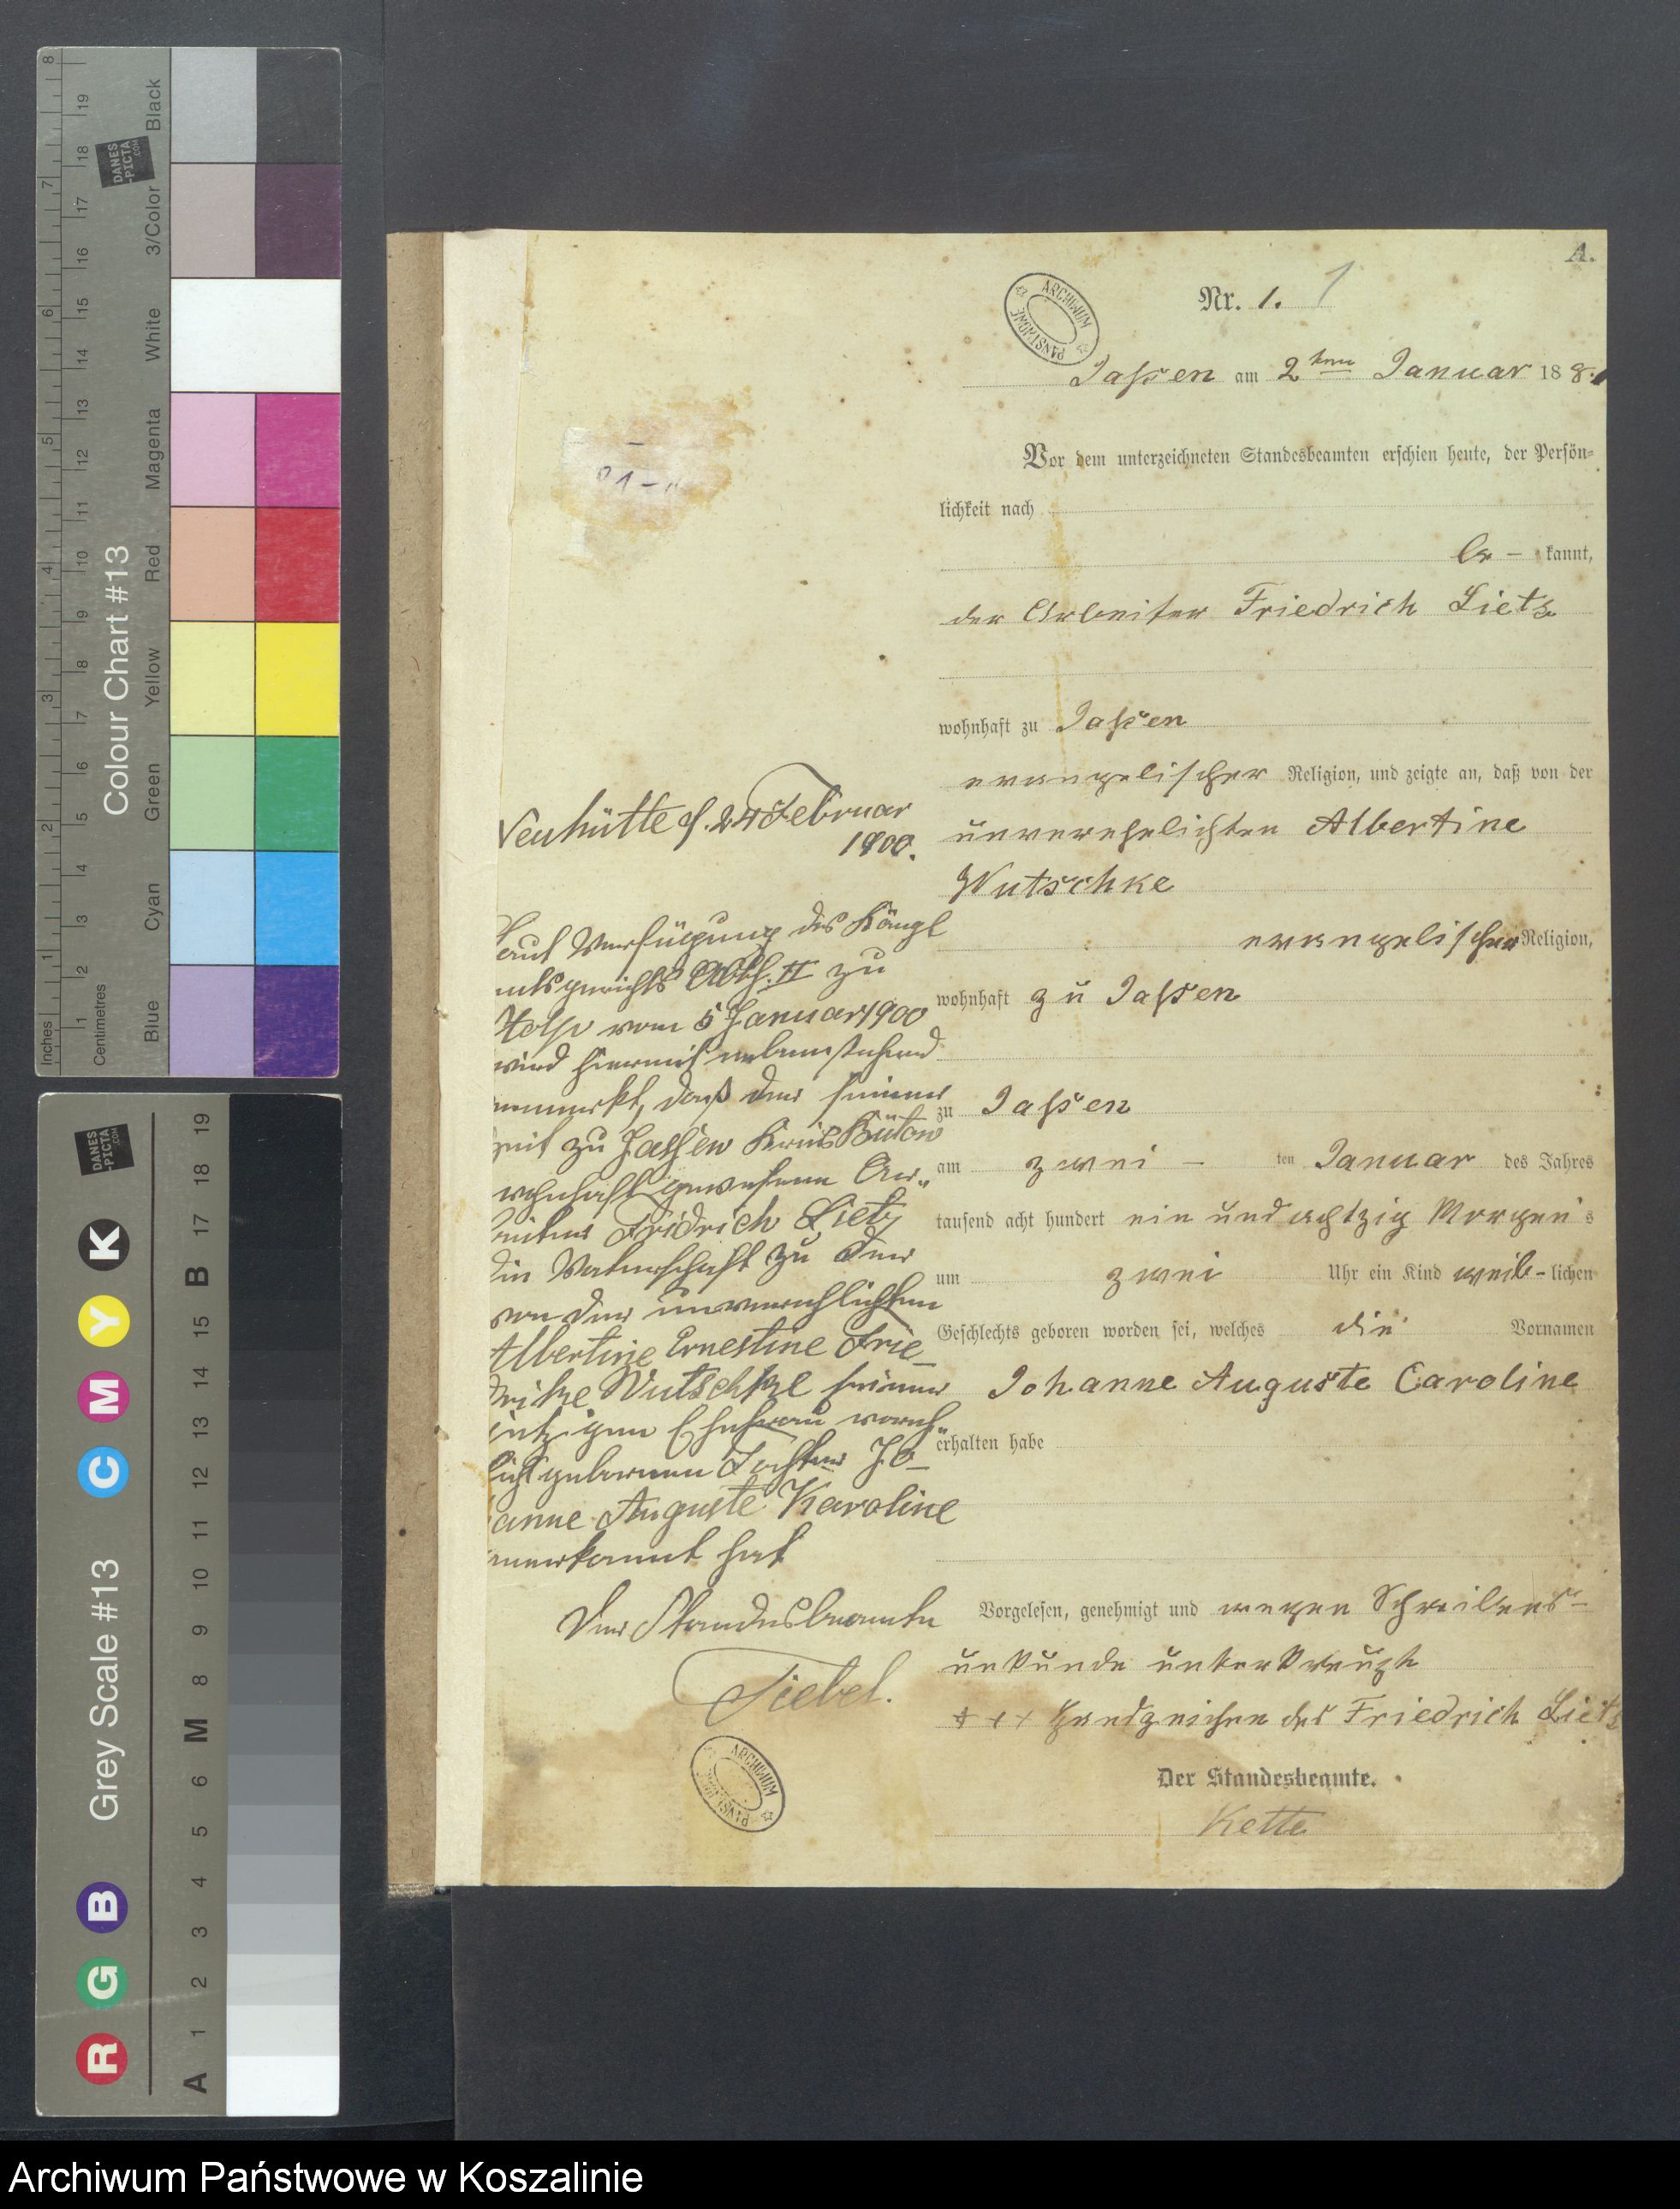 Inches
1
2
3
4
5
6
7
8
Centimetres
1
2
3
4
5
6
7
8
9
10
11
12
13
14
15
16
17
18
19
Colour Chart #13
Blue
Cyan
Green
Yellow
Red
Magenta
White
3/Color
Black
DANES
-PICTA
.COM
Grey Scale #13
R G B C M Y K
A 1 2 3 4 5 6 M 8 9 10 11 12 13 14 15 B 17 18 19
DANES
-PICTA
.COM
A.
Nr. 1. 1
ARCHIWUM PAŃSTWOWE
Jassen am 2ten Januar 188.1
Vor dem unterzeichneten Standesbeamten erschien heute, der Persön-
lichkeit nach
be- kannt,
der Arbeiter Friedrich Lietz
wohnhaft zu Jassen
evangelischer Religion, und zeigte an, daß von der
unverehelichten Albertine
Wutschke
evangelischer Religion,
wohnhaft zu Jassen
zu Jassen
am zwei - ten Januar des Jahres
tausend acht hundert ein und achtzig Morgens
um zwei Uhr ein Kind weib-lichen
Geschlechts geboren worden sei, welches die Vornamen
Johanne Auguste Caroline
erhalten habe
Vorgelesen, genehmigt und wegen Schreibens-
unkunde unterkreuzt
+++ Handzeichen des Friedrich Lietz
Der Standesbeamte.
Kette
Neuhütte d. 24 Februar
1900.
auf Verfügung des Köngl
mtsgerichts Abth. II zu
Stolp vom 5 Januar 1900
wird hiermit nebenstehend
vermerkt, daß der seiner
zeit zu Jassen Kreis Bütow
wohnhaft gewesene Ar-
beiter Fridrich Lietz
die Vaterschaft zu der
von der unverehlichten
Albertine Ernestine Frie-
drike Wutschke seiner
jetzigen Ehefrau voreh-
lich geborenen Tochter Jo-
hanne Auguste Karoline
anerkannt hat
Der Standesbeamte
Tiebel.
ARCHIWUM PAŃSTWOWE
Archiwum Państwowe w Koszalinie